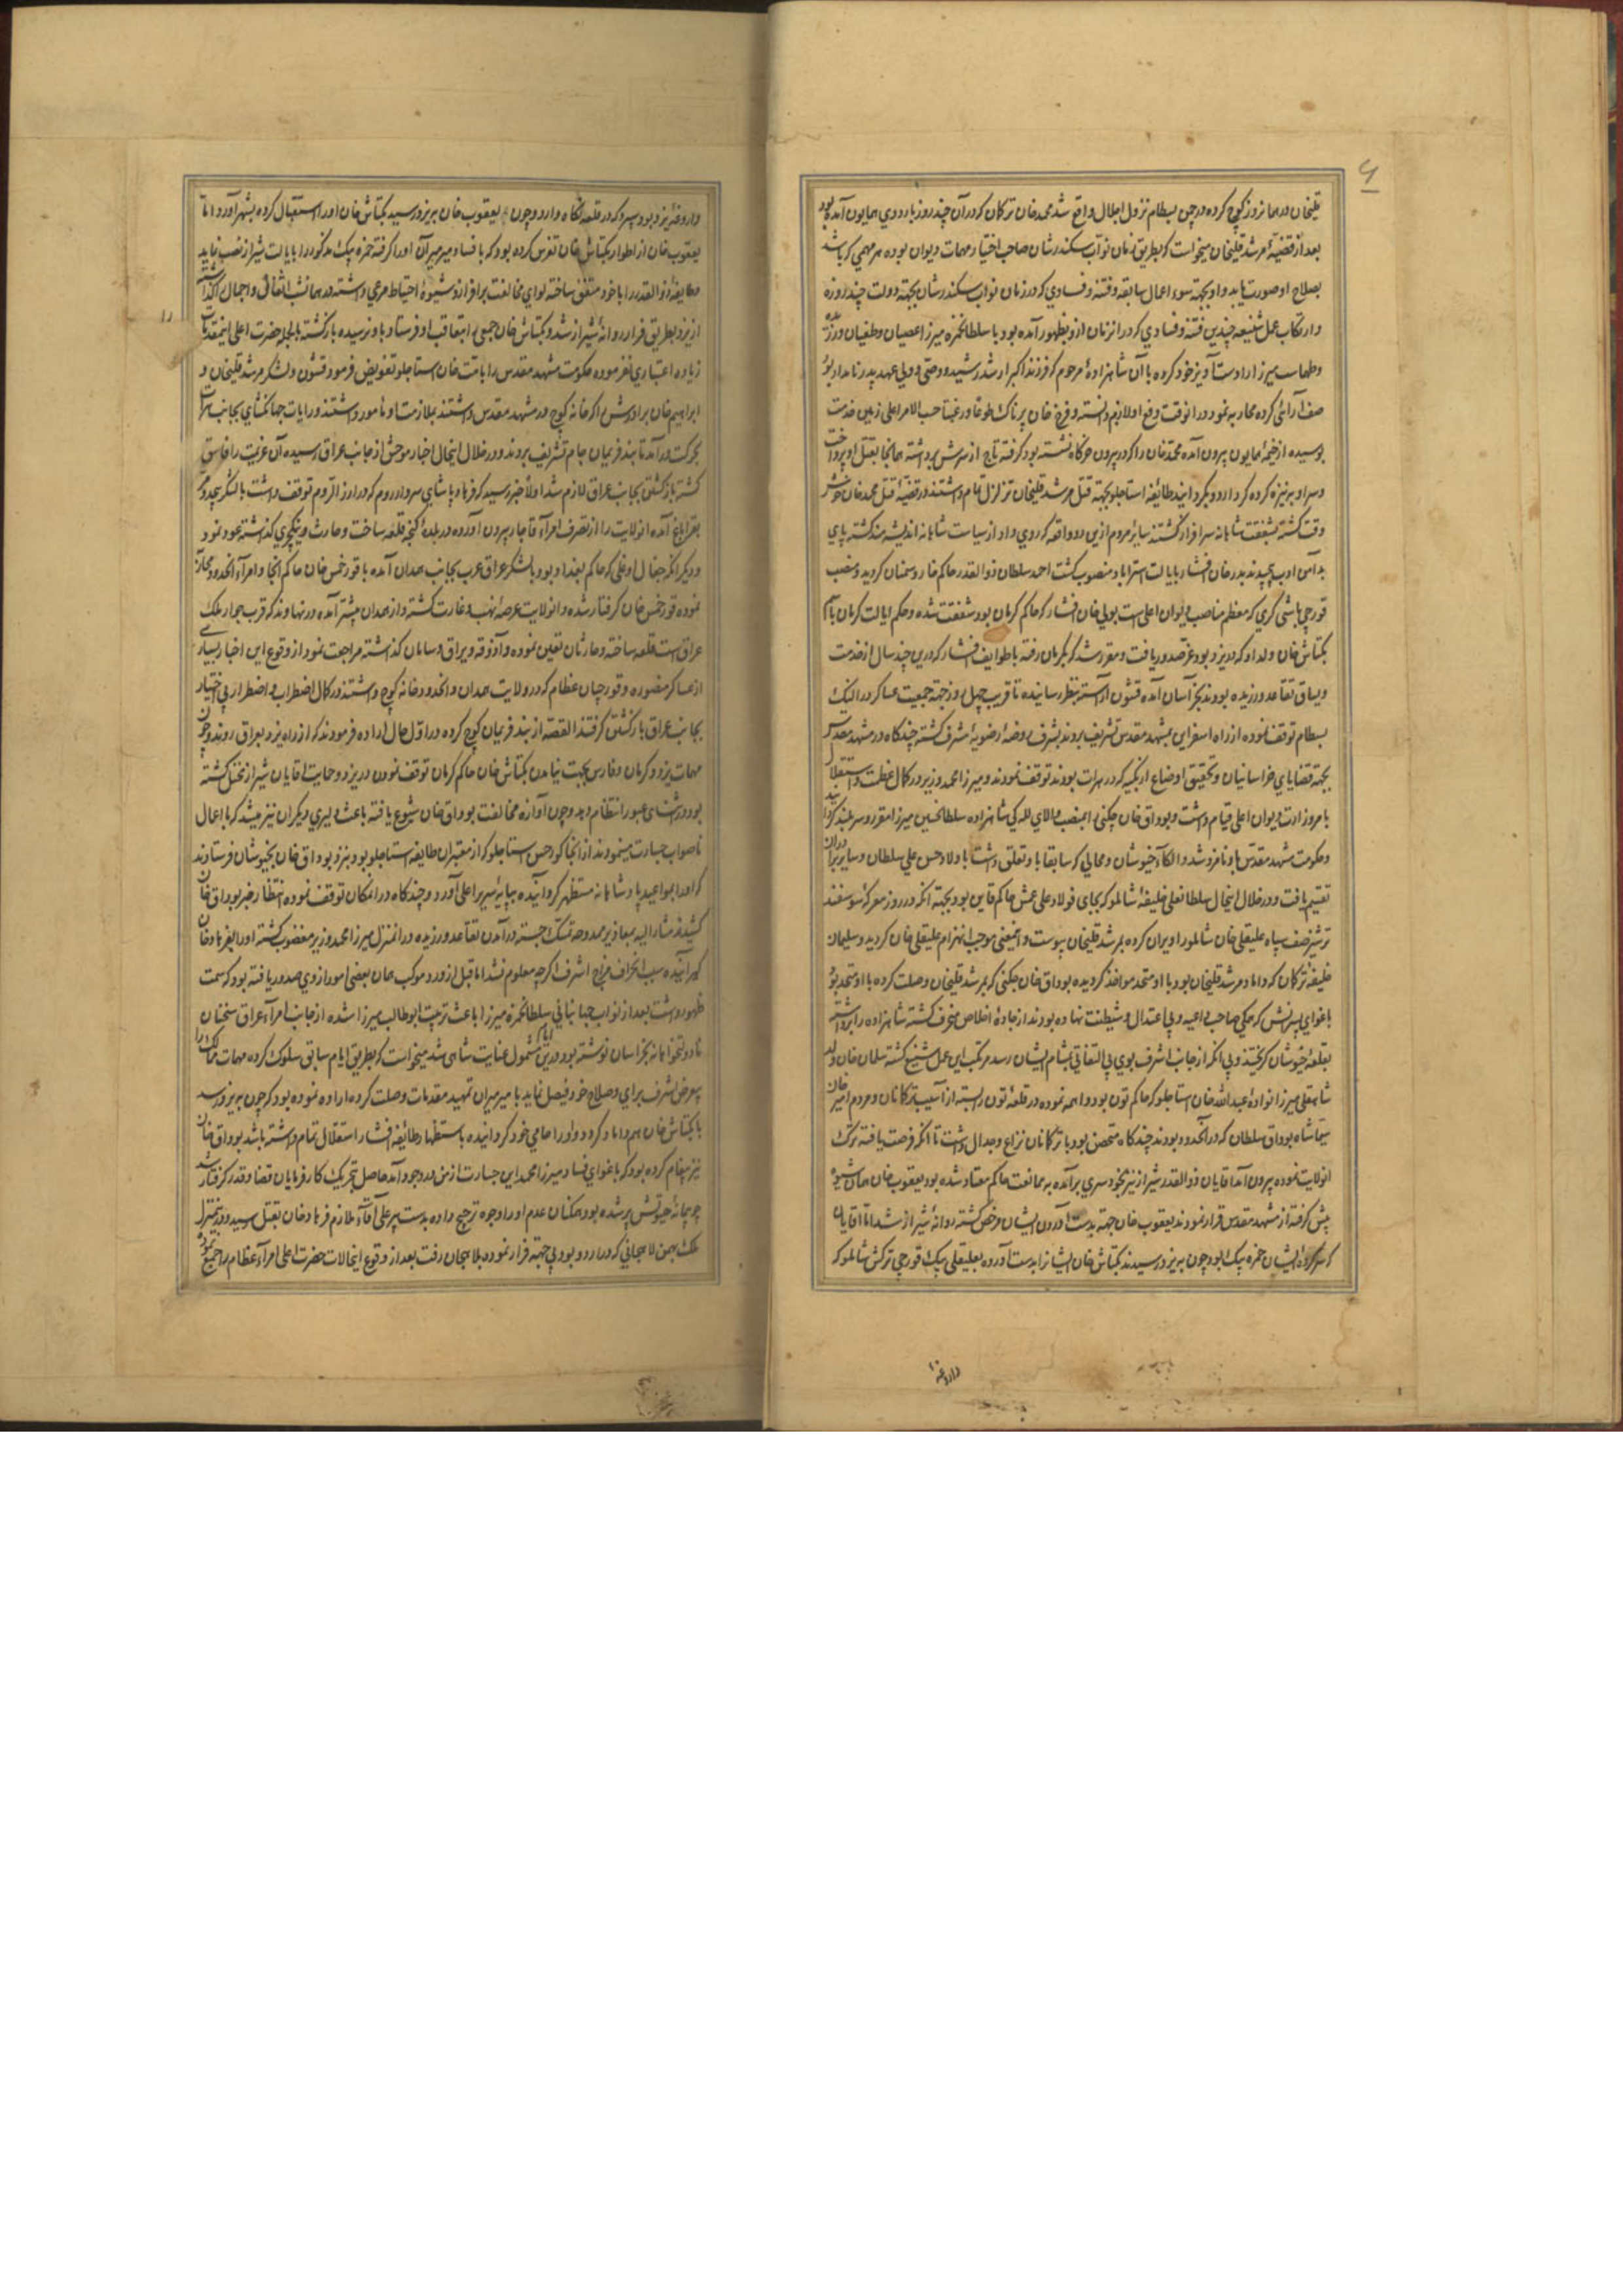 ۹
قلیخان در همانروز کوچ کرده در چمن بسطام نزول اجلال واقع شد محمدخان ترکان که در آن چند روز باردوی همایون آمده بود
بعد از قضیهٔ مرشد قلیخان میخواست که بطریق زمان نوآب سکندرشان صاحب اختیار مهمات دیوان بوده هر مهمی که باشد
بصلاح او صورت یابد و او بجهته سوء اعمال سابقه و فتنه و فسادی که در زمان نواب سکندرشان بجهته دولت چند روزه
و ارتکاب عمل شنیعه چندین فتنه و فسادی که در انزمان ازو بظهور آمده بود با سلطانحمزه میرزا عصیان و طغیان ورزیده
و طهماسب میرزا را دست آویز خود کرده با آن شاهزادهٔ مرحوم که فرزند اکبر ارشد رشید و وصی و ولی عهد پدر نامدار بود
صف آرائی کرده محاربه نمود در انوقت دفع او لازم دانسته و فرخ خان پرناک طوعا و رغبتا حسب الامر اعلی زمین خدمت
بوسیده از خیمهٔ همایون بیرون آمده محمدخان را که در بیرون خرکاه نشسته بود گرفته تاج از سرش برداشته همانجا بقتل او پرداخت
و سر او بر نیزه کرده گرد اردو بگردانید طائفه استاجلو بجهته قتل مرشد قلیخان تزلزل تمام داشتند در قضیهٔ قتل محمدخان خوش
وقت گشته بشفقت شاهانه سرافراز گشتند سایر مردم ازین دو واقعه که روی داد از سیاست شاهانه اندیشه مند گشته پای
بدامن ادب پیچیدند بدر خان افشار بایالت استراباد منصوب گشت احمد سلطان ذوالقدر حاکم خار و سمنان گردید و منصب
قورچی باشی گری که معظم مناصب دیوان اعلی است بولی خان افشار که حاکم کرمان بود شفقت شده و حکم ایالت کرمان بنام
بکتاش خان ولد او که در یزد بود عز صدور یافت و مقرر شد که بکرمان رفته با طوایف افشار که درین چند سال از خدمت
و یساق تقاعد ورزیده بودند بخراسان آمده قشون آراسته بنظر رسانیده تا قریب چهل روز جهته جمعیت عساکر در النک
بسطام توقف نموده از راه اسفراین بمشهد مقدس تشریف بردند بشرف روضهٔ رضویه مشرف گشته چندکاه در مشهد مقدس
بجهته قضایای خراسانیان و تحقیق اوضاع ازبکیه که در هرات بودند توقف نمودند و میرزا محمد وزیر در کمال عظمت و استقلال
بامر وزارت دیوان اعلی قیام داشت و بوداق خان چکنی بمنصب والای للـه کی شاهزاده سلطانحسین میرزا مقرر و سربلند گردید
و حکومت مشهد مقدس باو نامزد شد و الکاء خبوشان و محالی که سابقا باو تعلق داشت باولاد حسن علی سلطان و سایر برادران
تقسیم یافت و در خلال اینحال سلطانعلی خلیفهٔ شاملو که بجای فولاد علی عمش حاکم قاین بود بجهته آنکه در روز معرکهٔ سوسفند
ترشیز صف سپاه علیقلی خان شاملو را ویران کرده بمرشد قلیخان پیوست و اینمعنی موجب انهزام علیقلی خان گردید و سلیمان
خلیفهٔ ترکان که داماد مرشد قلیخان بود با او متحد مواخذ گردیده بوداق خان چکنی که بمرشد قلیخان وصلت کرده با او متحد بود
باغوای پسرانش که همکی صاحب داعیه و بی اعتدال و شیطنت نهاده بودند از جادهٔ اخلاص منحرف گشته شاهزاده را برداشته
بقلعهٔ خبوشان گریختند و بی آنکه از جانب اشرف بوی بی التفاتی بمشام ایشان رسد مرتکب این عمل شنیع گشته سلمان خان ولد
شاهقلی میرزا نوادهٔ عبدالله خان استاجلو که حاکم تون بود واهمه نموده در قلعهٔ تون از آسیب ترکانان و مردم امیر خان
سیما شاه بوداق سلطان که در انحدود بودند چندکاه متحصن بود با ترکانان نزاع و جدال داشت تا آنکه فرصت یافته ترک
انولایت نموده بیرون آمد آقایان ذوالقدر شیراز نیز بخودسری برآمده به ممانعت حاکم معتاد شده بود یعقوب خان همان شیوه
پیش گرفته از مشهد مقدس فرار نمودند یعقوب خان جهته بدست آوردن ایشان مرخص گشته روانهٔ شیراز شد اما آقایان
که سرکرده ایشان حمزه بیک بود چون به یزد رسیدند بکتاش خان ایشانرا بدست آورده بعلیقلی بیک قورچی ترکش شاملو که
داروغهٔ
۱۰
داروغهٔ یزد بود سپرد که در قلعه نگاه دارد و چون یعقوب خان به یزد رسید بکتاش خان او را استقبال کرده بشهر آورد اما
یعقوب خان از اطوار بکتاش خان تفرس کرده بود که بافساد میر میران او را گرفته حمزه بیک مذکور را بایالت شیراز نصب نماید
و طایفهٔ ذوالقدر را با خود متفق ساخته لوای مخالفت برافرازد شیوهٔ احتیاط مرعی داشته در همانشب اثقال و اجمال گذاشته
از یزد بطریق فرار روانهٔ شیراز شد و بکتاش خان جمعی بتعاقب او فرستاد باو نرسیده بازگشتند بالجمله حضرت اعلی اینمقدمات
زیاده اعتباری نفرموده حکومت مشهد مقدس را بامت خان استاجلو تفویض فرمود قشون و لشکر مرشد قلیخان و
ابراهیم خان برادرش را که خانه کوچ در مشهد مقدس داشتند بملازمت او مامور داشتند و رایات جهانگشای بجانب هرات
بحرکت درآمد تا بند فریمان جام تشریف بردند و در خلال اینحال اخبار موحش از جانب عراق رسیده آن عزیمت را فاسق
گشته بازگشتن بجانب عراق لازم شد اولا خبر رسید که فرهاد پاشای سردار روم که در ارز الروم توقف داشت با لشکر بیعدد
بقراباغ آمده انولایت را از تصرف امراء قاجار بیرون آورده در بلدهٔ گنجه قلعه ساخت و حارث و ینکچری گذاشته عود نمود
و دیگر آنکه جغال اوغلی که حاکم بغداد بود با لشکر عراق عرب بجانب همدان آمده با قورخمس خان حاکم آنجا و امراء انحدود محاربه
نموده قورخمس خان گرفتار شده و انولایت عرصهٔ نهب و غارت گشته و از همدان پیشتر آمده در نهاوند که قرب جوار ملک
عراق است قلعه ساخته و حارثان تعیین نموده و آذوقه و یراق و سامان گذاشته مراجعت نمود از وقوع این اخبار بسیاری
از عساکر منصوره و قورچیان عظام که در ولایت همدان و انحدود خانه کوچ داشتند در کمال اضطراب و اضطرار بی اختیار
بجانب عراق بازگشتن گرفتند القصه از بند فریمان کوچ کرده در اول حال اراده فرمودند که از راه یزد بعراق روند و چون
مهمات یزد و کرمان و فارس بجهت نیامدن بکتاش خان حاکم کرمان توقف نمودن در یزد و حمایت آقایان شیراز مختل گشته
بود در اثنای عبور انتظام دهد و چون آوازه مخالفت بوداق خان شیوع یافته باعث دلیری دیگران نیز میشد که باعمال
ناصواب جسارت مینمودند از آنجا کور حسن استاجلو که از معتبران طایفه استاجلو بود بنزد بوداق خان بخبوشان فرستادند
که او را بمواعید پادشاهانه مستظهر گردانیده بپایهٔ سریر اعلی آورد و چندکاه در انمکان توقف نموده انتظار خبر بوداق خان
کشیدند مشار الیه بمعاذیر مموهه تمسک جسته در آمدن تقاعد ورزیده در انمنزل میرزا محمد وزیر مغضوب گشته او را بفرهاد خان
سپردند سبب انحراف مزاج اشرف اگرچه معلوم نشد اما قبل از ورود موکب همان بعضی امور ازوی صدور یافته بود که سمت
ظهور داشت بعد از نواب جهانبانی سلطانحمزه میرزا باعث تربیت ابوطالب میرزا شده از جانب امراء عراق سخنان
نادولتخواهانه بخراسان نوشته بود و درین ایام که مشمول عنایت شاهی شد میخواست که بطریق ایام سابق سلوک کرده مهمات ممالک را
بعرض اشرف برای و صلاح خود فیصل نماید با میر میران تمهید مقدمات وصلت کرده اراده نموده بود که چون به یزد رسد
با بکتاش خان هم داماد گردد و او را حامی خود گردانیده باستظهار طائفهٔ افشار استقلال تمام داشته باشد بوداق خان
نیز پیغام کرده بود که باغوای فساد میرزا محمد این جسارت از من بوجود آمد حاصل بتحریک کارفرمایان قضا و قدر گرفتار شد
چو پیمانهٔ حیوتش پر شده بود همکنان عدم او را بوجود ترجیح داده بدست پیر علی آقاء ملازم فرهاد خان بقتل رسید و در اینمنزل
ملک بهمن لاهیجانی که در اردو بود بی جهته فرار نموده بلاهیجان رفت بعد از وقوع اینحالات حضرت اعلی امراء عظام را جمع نموده